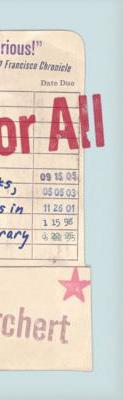 rious!"
Francisco Chronicle
Date Due
or All
09 15 05
s,
05 05 03
s in
11 26 01
rary
1 15 98
chert